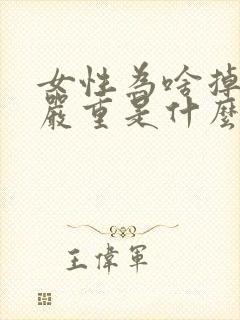 女性為啥掉
嚴重是什麼
王偉軍